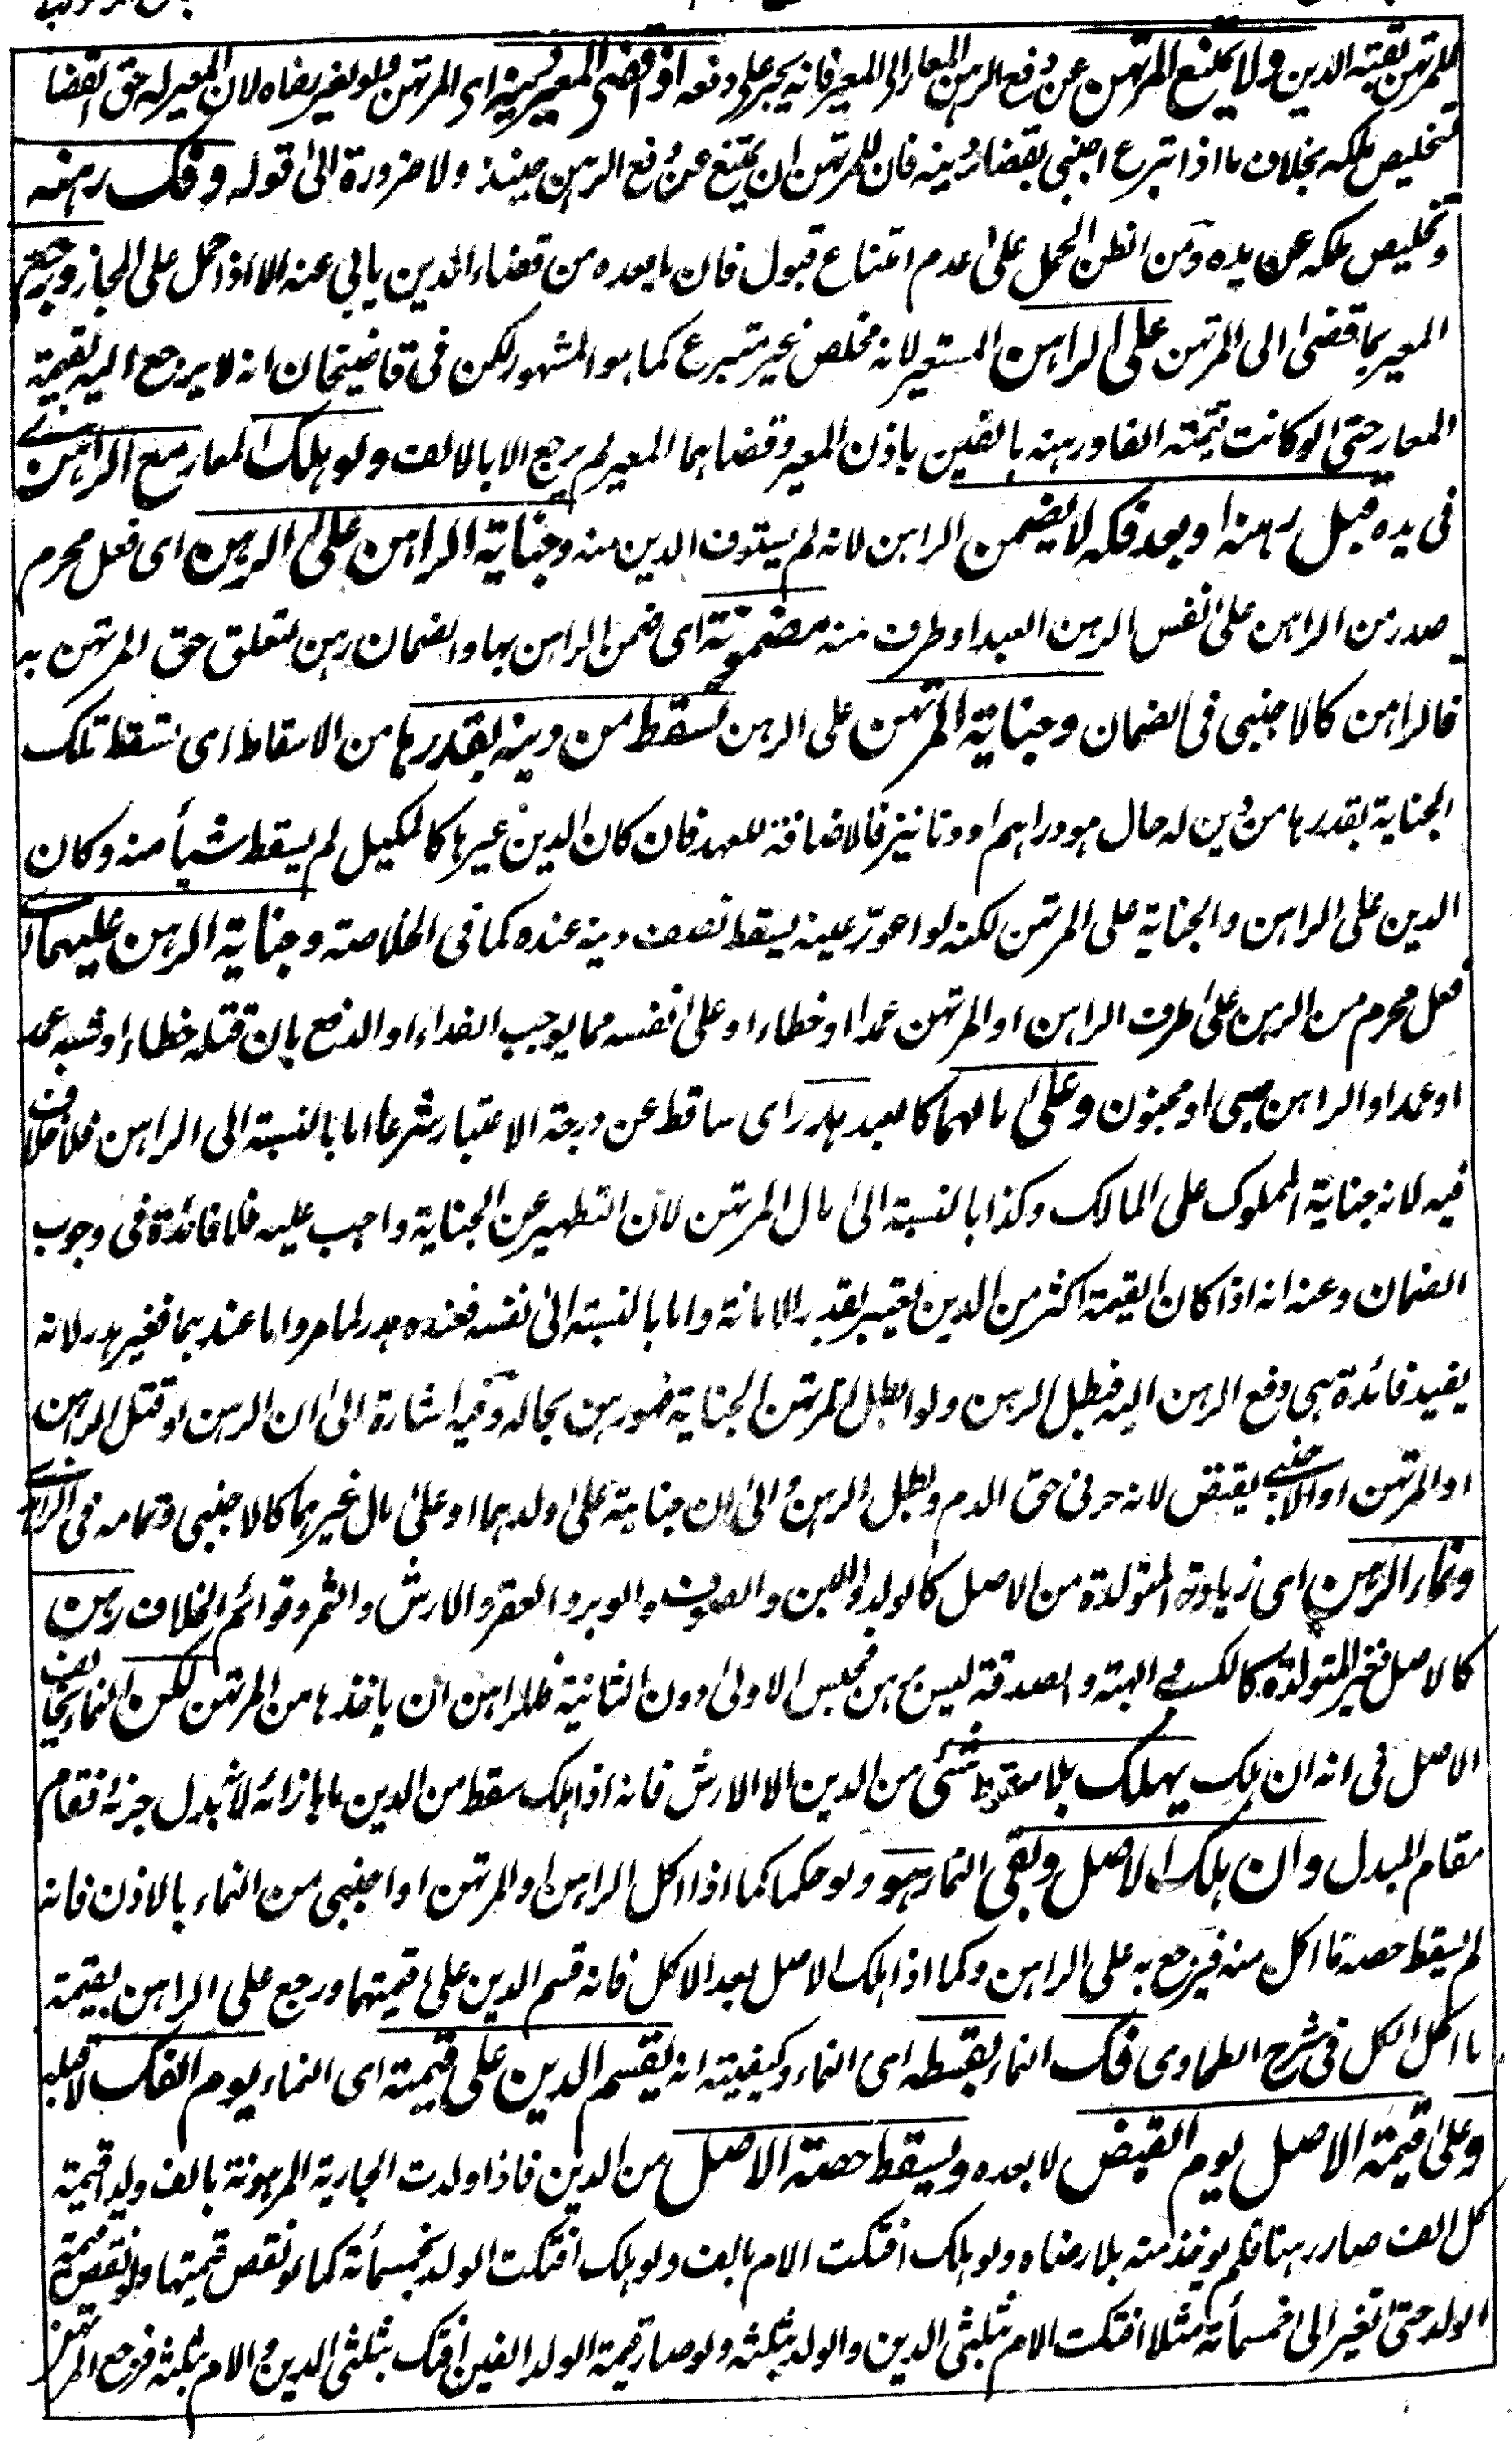 للمرتهن بقيته الدين ولا يمتنع المرتهن عن دفع الرهن المعار الى المعير فانه يجبر على دفعه اذا قضى المعير دينه اى المرتهن ولو بغير رضاه لان المعير له حق القضا
لتخليص ملكه بخلاف ما اذا تبرع اجنبى بقضاء دينه فان للمرتهن ان يمتنع عن دفع الرهن حينئذ ولا ضرورة الى قوله وفك رهنه
وتخليص ملكه عن يده ومن الظن الحمل على عدم امتناع قبول فان ما بعده من قضاء الدين يابى عنه الا اذا حمل على المجاز ويرجع
المعير بما قضى الى المرتهن على الراهن المستعير لانه مخلص غير متبرع كما هو المشهور لكن فى قاضيخان انه لا يرجع اليه بقيمة
المعار حتى لو كانت قيمته الفا ورهنه بالفين باذن المعير وقضاهما المعير لم يرجع الا بالالف ولو هلك المعار مع الراهن
فى يده قبل رهنه او بعد فكه لا يضمن الراهن لانه لم يستوف الدين منه وجناية الراهن على الرهن اى فعل محرم
صدر من الراهن على نفس الرهن العبد او طرف منه مضمونة اى ضمن الراهن بها والضمان رهن لتعلق حق المرتهن به
فالراهن كالاجنبى فى الضمان وجناية المرتهن على الرهن تسقط من دينه بقدرها من الاسقاط اى تسقط تلك
الجناية بقدرها من دين له حال هو دراهم او دنانير فالاضافة للعهد فان كان الدين غيرها كالمكيل لم يسقط شيأ منه وكان
الدين على الراهن والجناية على المرتهن لكنه لو اعور عينه يسقط نصف دينه عنده كما فى الخلاصة وجناية الرهن عليهما اى
فعل محرم من الرهن على طرف الراهن او المرتهن عمدا او خطاء او على نفسه مما يوجب الفداء او الدفع بان قتله خطاء او شبه عمد
او عمدا والراهن صبى او مجنون وعلى مالهما كالعبد هدر اى ساقط عن درجة الاعتبار شرعا اما بالنسبة الى الراهن فلا خلاف
فيه لانه جناية المملوك على المالك وكذا بالنسبة الى مال المرتهن لان التطهير عن الجناية واجب عليه فلا فائدة فى وجوب
الضمان وعنه انه اذا كان القيمة اكثر من الدين اعتبر بقدر الامانة واما بالنسبة الى نفسه فعنده هدر لما مر واما عندهما فغير هدر لانه
يفيد فائدة هى دفع الرهن اليه فيبطل الرهن ولو ابطل المرتهن الجناية فهو رهن بحاله وفيه اشارة الى ان الرهن لو قتل الراهن
او المرتهن او الاجنبى يقتص لانه حر فى حق الدم وبطل الرهن والى ان جناية على ولدهما او على مال غيرهما كالاجنبى وتمامه فى
ونماء الرهن اى زيادته المتولدة من الاصل كالولد واللبن والصوف والوبر والعقر والارش والثمر وقوائم الخلاف رهن
كالاصل فغير المتولدة كالكسب والهبة والصدقة ليس برهن فحبس الاولى دون الثانية فللراهن ان ياخذها من المرتهن لكن النماء يخالف
الاصل فى انه ان هلك يهلك بلا سقوط شئى من الدين الا الارش فانه اذا هلك سقط من الدين ما بازائه لانه بدل جزئه فقام
مقام المبدل وان هلك الاصل وبقى النماء هو ولو حكما كما اذا اكل الراهن او المرتهن او اجنبى من النماء بالاذن فانه
لم يسقط حصة ما اكل منه فيرجع به على الراهن وكما اذا هلك الاصل بعد الاكل فانه قسم الدين على قيمتهما ورجع على الراهن بقيمة
ما اكل الكل فى شرح الطحاوى فك النماء بقسطه اى النماء وكيفيته انه يقسم الدين على قيمته اى النماء يوم الفك لا قبله
وعلى قيمة الاصل يوم القبض لا بعده ويسقط حصة الاصل من الدين فاذا ولدت الجارية المرهونة بالف ولدا قيمة
كل الف صار رهنا فلم يوخذ منه بلا رضاه ولو هلك افتكت الام بالف ولو هلك افتكت الولد بخمسمأة كما لو نقص قيمتها ولو نقص قيمة
الولد حتى تغير الى خمسمأة مثلا افتكت الام بثلثى الدين والولد بثلثه ولو صار قيمة الولد الفين افتك بثلثى الدين والام بثلثه فرجع المرتهن